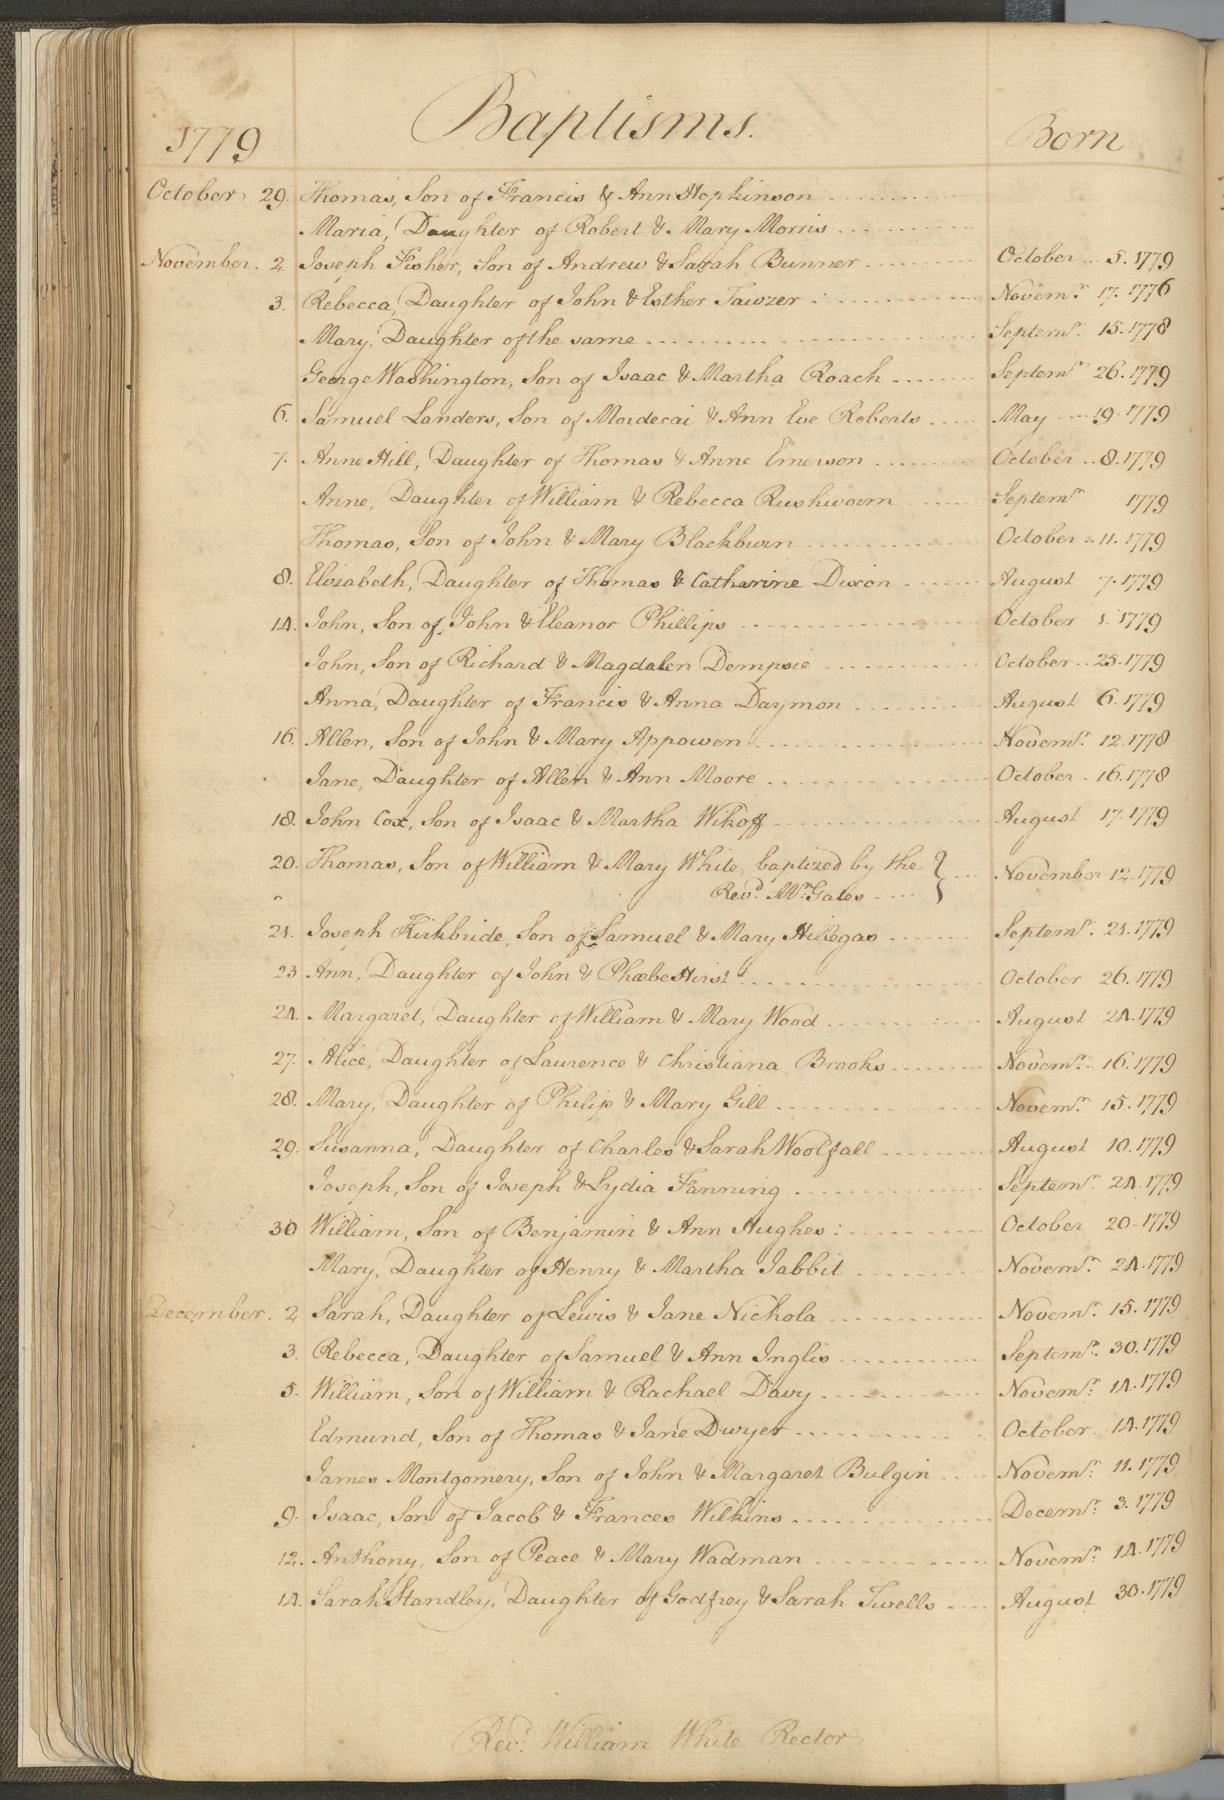 1779 Baptisms. Born
October 29. Thomas, Son of Francis & Ann Hopkinson
Maria, Daughter of Robert & Mary Morris
November. 2 Joseph Fisher, Son of Andrew & Sarah Bunner October 5. 1779
3. Rebecca, Daughter of John & Esther Tawzer Novemr. 17. 1776
Mary, Daughter of the same Septemr. 15. 1778
George Washington, Son of Isaac & Martha Roach Septemr 26. 1779
6. Samuel Landers, Son of Mordecai & Ann Eve Roberts May 19. 1779
7. Anne Hill, Daughter of Thomas & Anne Emerson October 8. 1779
Anne, Daughter of William & Rebecca Rushworm Septemr 1779
Thomas, Son of John & Mary Blackburn October 11. 1779
8. Elizabeth, Daughter of Thomas & Catharine Dixon August 7. 1779
14. John, Son of John & Eleanor Phillips October 1. 1779
John, Son of Richard & Magdalen Dempsie October 25. 1779
Anna, Daughter of Francis & Anna Daymon August 6. 1779
16. Allen, Son of John & Mary Appowen Novemr. 12. 1778
Jane, Daughter of Allen & Ann Moore October 16. 1778
18. John Cox, Son of Isaac & Martha Wikoff August 17. 1779
20. Thomas, Son of William & Mary White, baptized by the November 12. 1779
Revd. Mr. Gates
21. Joseph Kirkbride, Son of Samuel & Mary Hillegas Septemr. 21. 1779
23 Ann, Daughter of John & Phœbe Hirst October 26. 1779
24. Margaret, Daughter of William & Mary Wood August 24. 1779
27. Alice, Daughter of Laurence & Christiana Brooks Novemr. 16. 1779
28. Mary, Daughter of Philip & Mary Gill Novemr. 15. 1779
29. Susanna, Daughter of Charles & Sarah Woolfall August 10. 1779
Joseph, Son of Joseph & Lydia Fanning Septemr. 24. 1779
30 William, Son of Benjamin & Ann Hughes October 20. 1779
Mary, Daughter of Henry & Martha Jabbit Novemr. 24. 1779
December. 2 Sarah, Daughter of Lewis & Jane Nichola Novemr. 15. 1779
3. Rebecca, Daughter of Samuel & Ann Inglis Septemr. 30. 1779
5. William, Son of William & Rachael Davy Novemr. 14. 1779
Edmund, Son of Thomas & Jane Dwyer October 14. 1779
James Montgomery, Son of John & Margaret Bulgin Novemr. 11. 1779
9. Isaac, Son of Jacob & Frances Wilkins Decemr. 3. 1779
12. Anthony, Son of Peace & Mary Wadman Novemr. 14. 1779
14. Sarah Standley, Daughter of Godfrey & Sarah Twells August 30. 1779
Revd. William White Rector